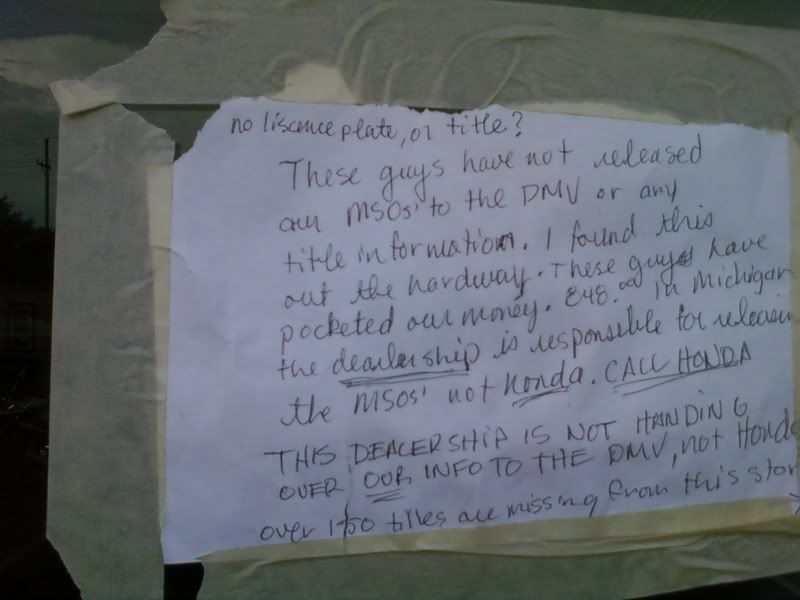 no liscence plate, or title?
These guys have not released
our MSOs' to the DMV or any
title information. I found this
out the hardway. These guys have
pocketed our money. 848.00 In Michigan
the dealership is responsible for releasin
the MSOs' not Honda. CALL HONDA
THIS DEALERSHIP IS NOT HANDING
OVER OUR INFO TO THE DMV, not Honda
over 150 titles are missing from this stor